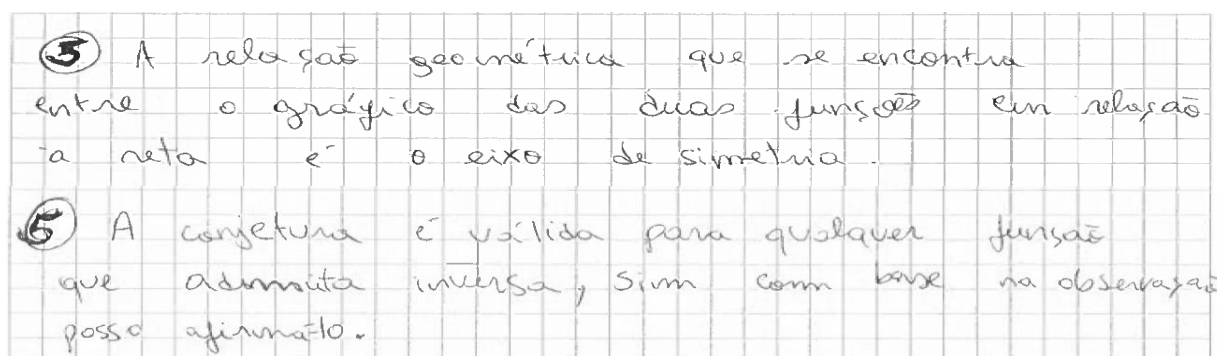 3 A relação geométrica que se encontra
entre o gráfico das duas funções em relação
à reta é o eixo de simetria.
5 A conjetura é válida para qualquer função
que admita inversa, sim com base na observação
posso afirmá-lo.